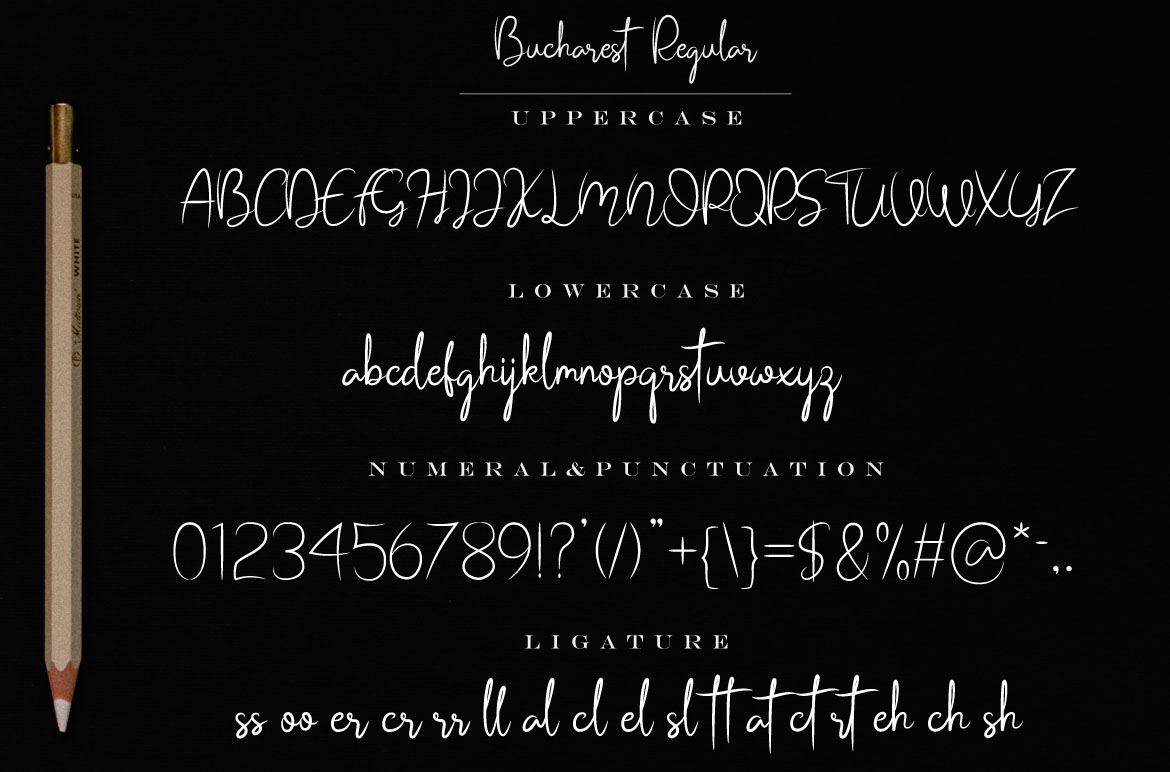 Bucharest Regular
UPPERCASE
ABCDEFGHIJKLMNOPQRSTUVWXYZ
LOWERCASE
abcdefghijklmnopqrstuvwxyz
NUMERAL&PUNCTUATION
0123456789!?'(/)"+{\}=$&%#@*-,.
LIGATURE
ss oo er cr rr ll al cl el sl tt at ct rt eh ch sh
WHITE